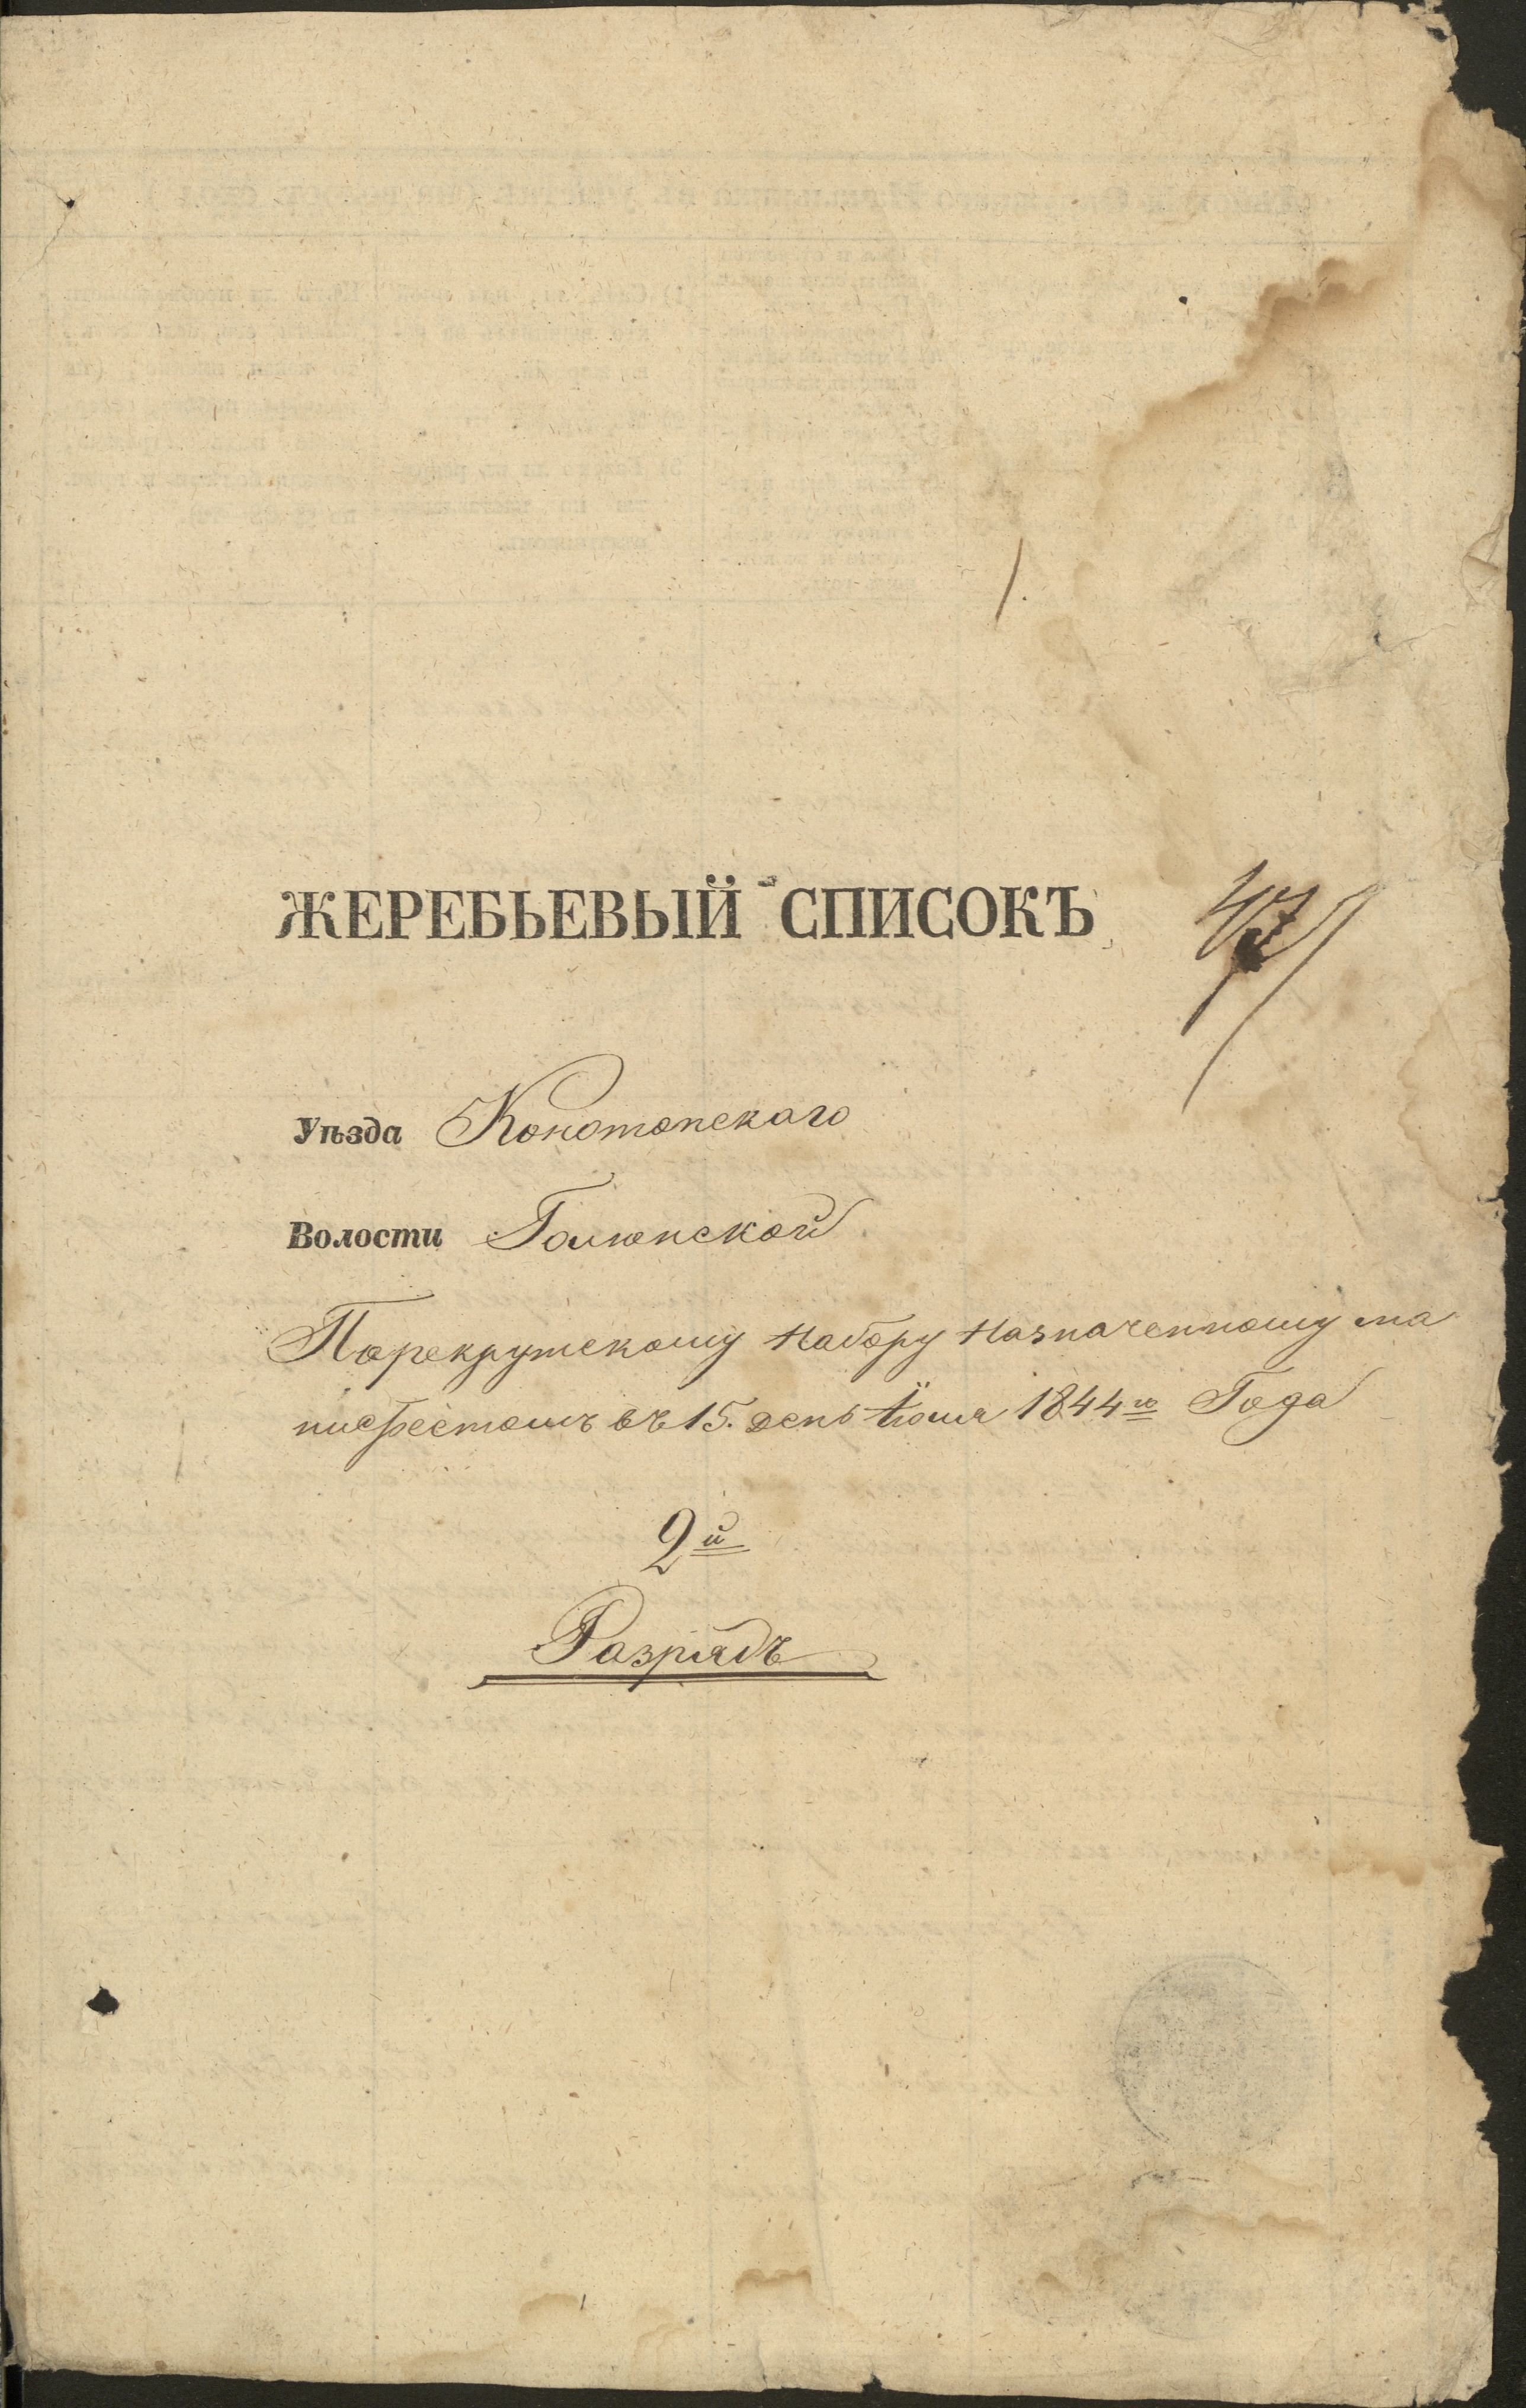 1.
ЖЕРЕБЬЕВЫЙ СПИСОКЪ
47
Уѣзда Конотопскаго
Волости Голенской
Порекрутскому набору назначенному ма
нифестомъ въ 15. день Іюля 1844го Года
2й
Разрядъ